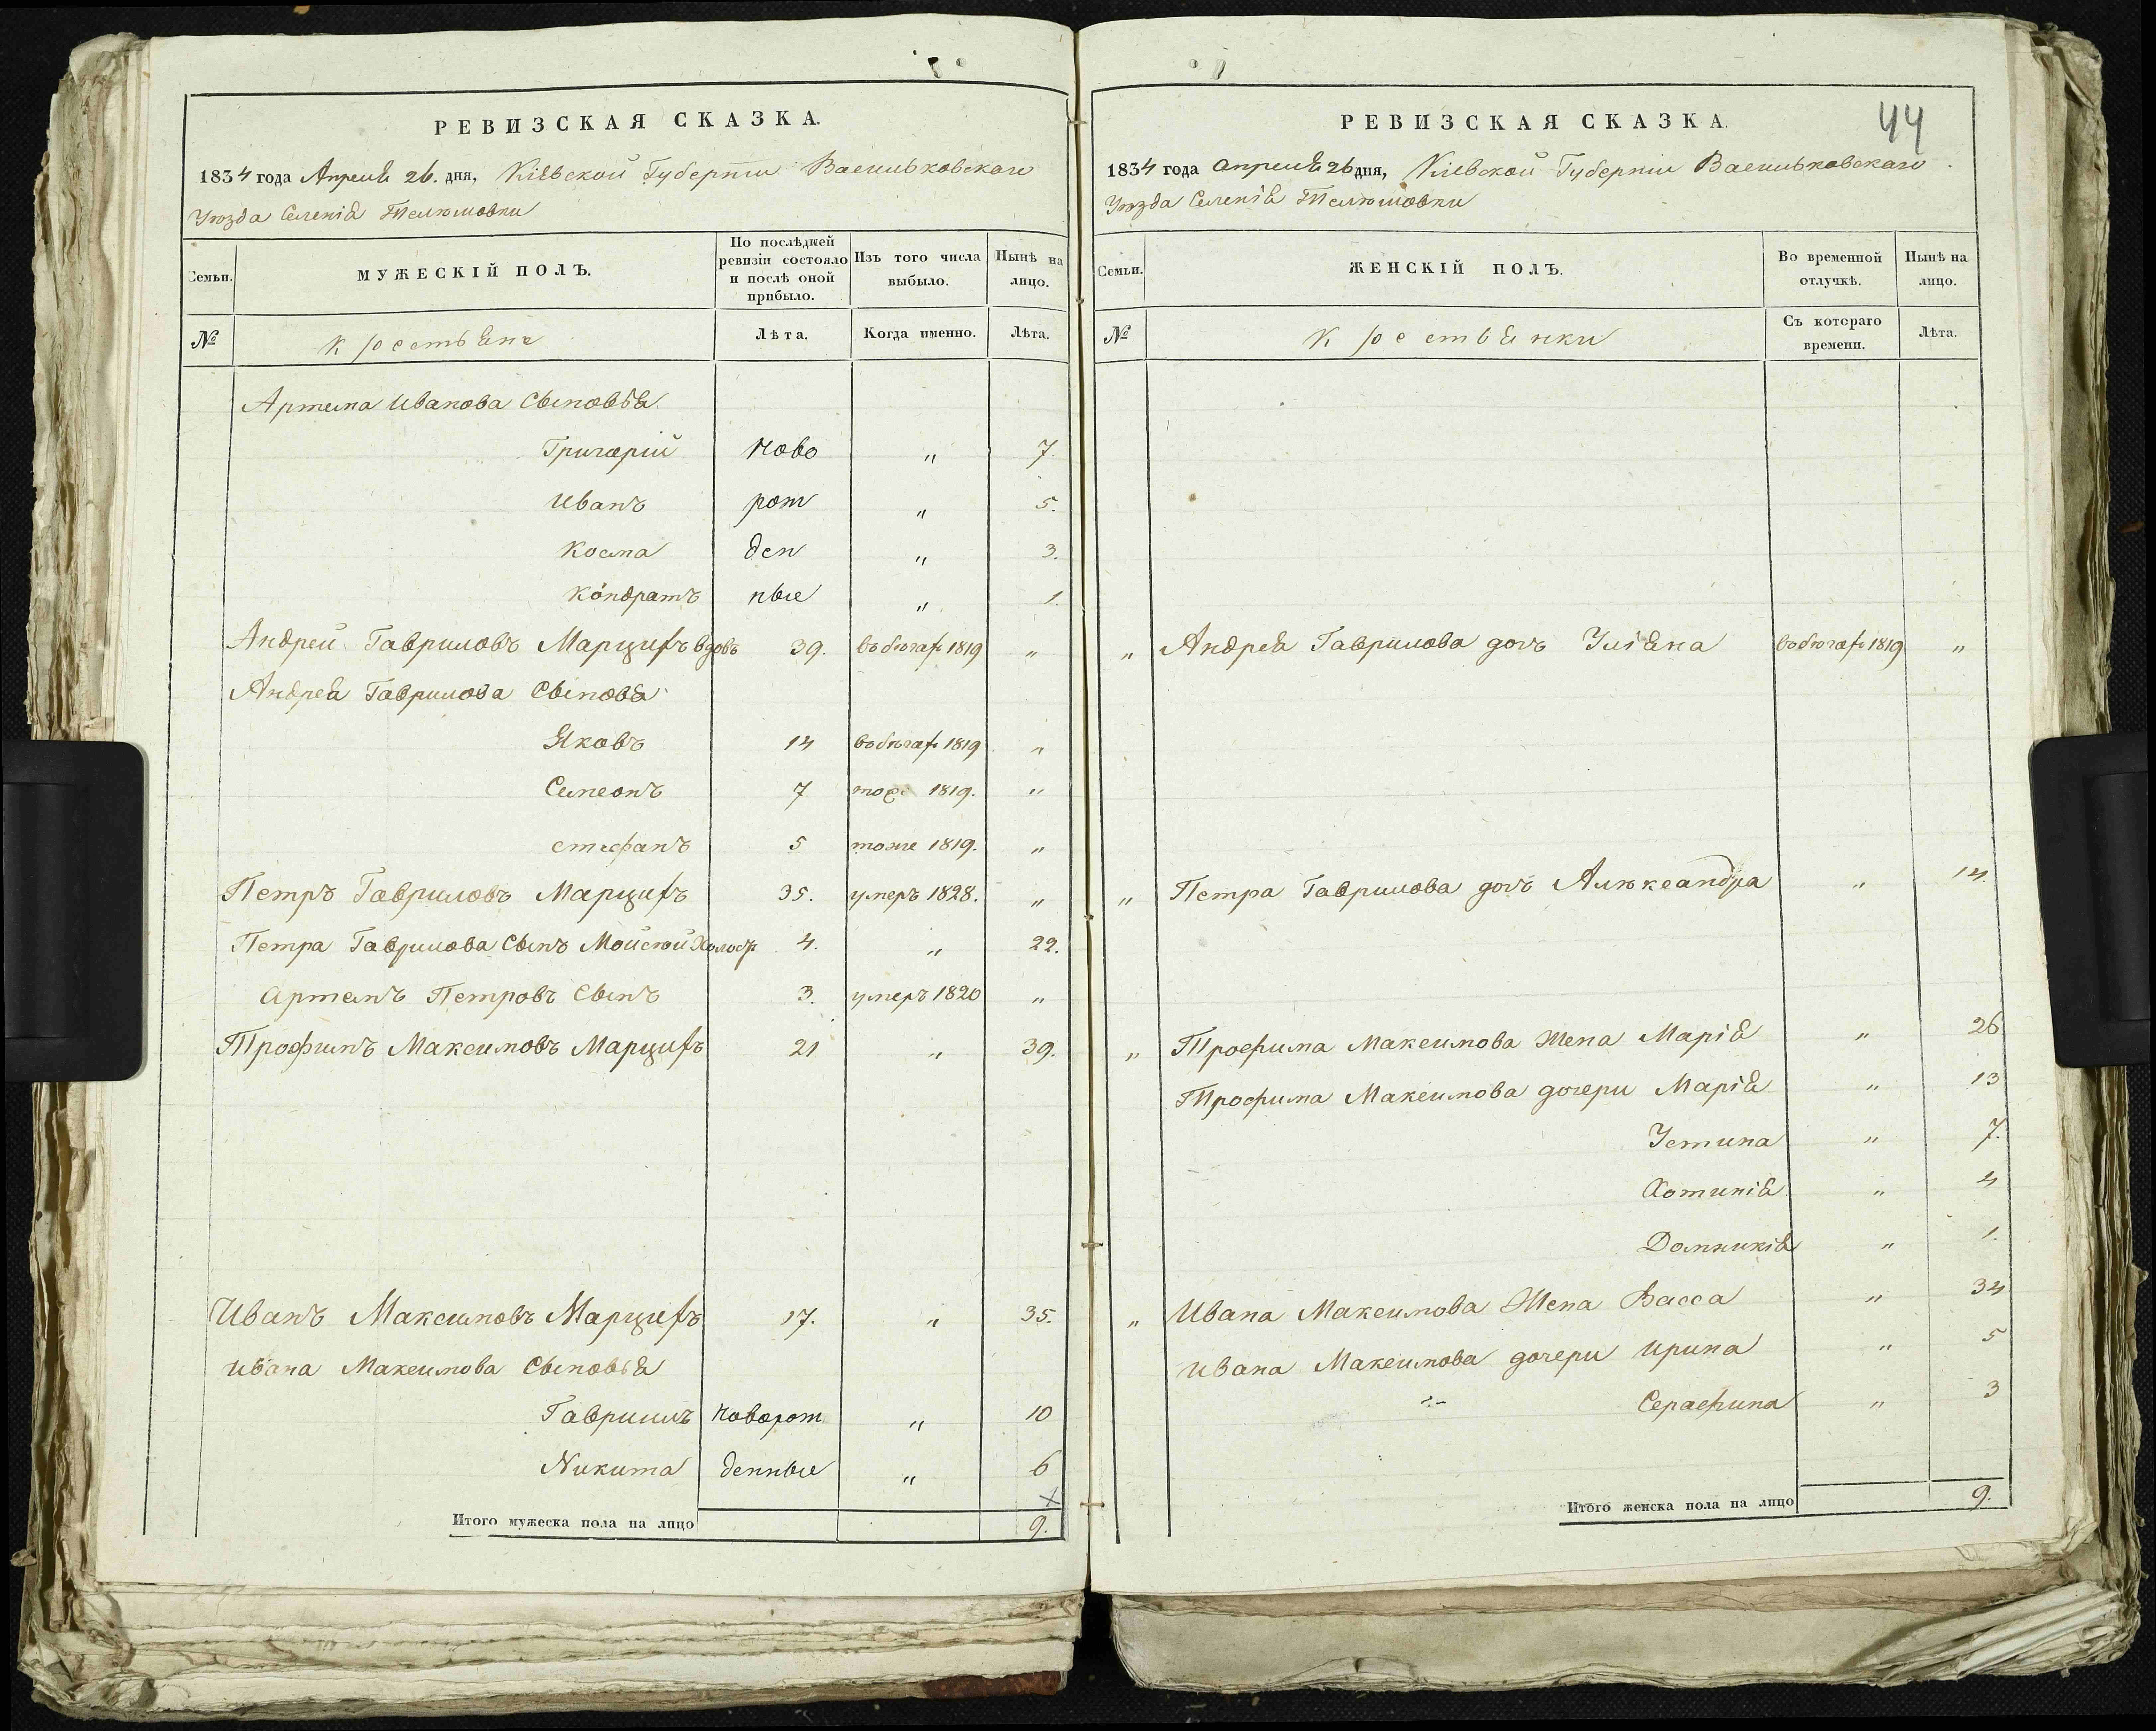 РЕВИЗСКАЯ СКАЗКА.
1834 года Апреля 26. дня, Кіевской Губерніи Васильковскаго
Уѣзда Селенія Телюшовки
Семьи.
МУЖЕСКІЙ ПОЛЪ.
По послѣдней ревизіи состояло и послѣ оной прибыло.
Изъ того числа выбыло.
Нынѣ на лицо.
№
Крестьянъ
Лѣта.
Когда именно.
Лѣта.
Артема Иванова Сыновья
Григорій Ново „ 7.
Иванъ рож „ 5.
Косма ден „ 3.
Кондратъ ные „ 1.
Андрей Гавриловъ Марциф вдовъ 39. въ бѣгах 1819 „
Андрея Гаврилова Сыновья
Яковъ 14 въ бѣгах 1819 „
Симеонъ 7 тоже 1819. „
Стефанъ 5 тоже 1819. „
Петръ Гавриловъ Марцифъ 35. умеръ 1828. „
Петра Гаврилова Сынъ Мойсѣй Холост 4. „ 22.
Артемъ Петровъ Сынъ 3. умеръ 1820 „
Трофимъ Максимовъ Марцифъ 21 „ 39.
Иванъ Максимовъ Марцифъ 17. „ 35.
Ивана Максимова Сыновья
Гавриилъ Новорож „ 10
Никита денные „ 6
Итого мужеска пола на лицо 9.
44
РЕВИЗСКАЯ СКАЗКА.
1834 года Апреля 26 дня, Кіевской Губерніи Васильковскаго
Уѣзда Селенія Телюшовки
Семьи.
ЖЕНСКІЙ ПОЛЪ.
Во временной отлучкѣ.
Нынѣ на лицо.
№
Крестьянки
Съ котораго времени.
Лѣта.
„ Андрея Гаврилова дочь Уліяна въ бѣгах 1819 „
„ Петра Гаврилова дочь Алюксандра „ 14.
„ Трофима Максимова Жена Марія „ 26
Трофима Максимова дочери Марія „ 13
Устина „ 7.
Хотинія „ 4
Домникія „ 1.
„ Ивана Максимова Жена Васса „ 34
Ивана Максимова дочери Ирина „ 5
Серафима „ 3
Итого женска пола на лицо 9.